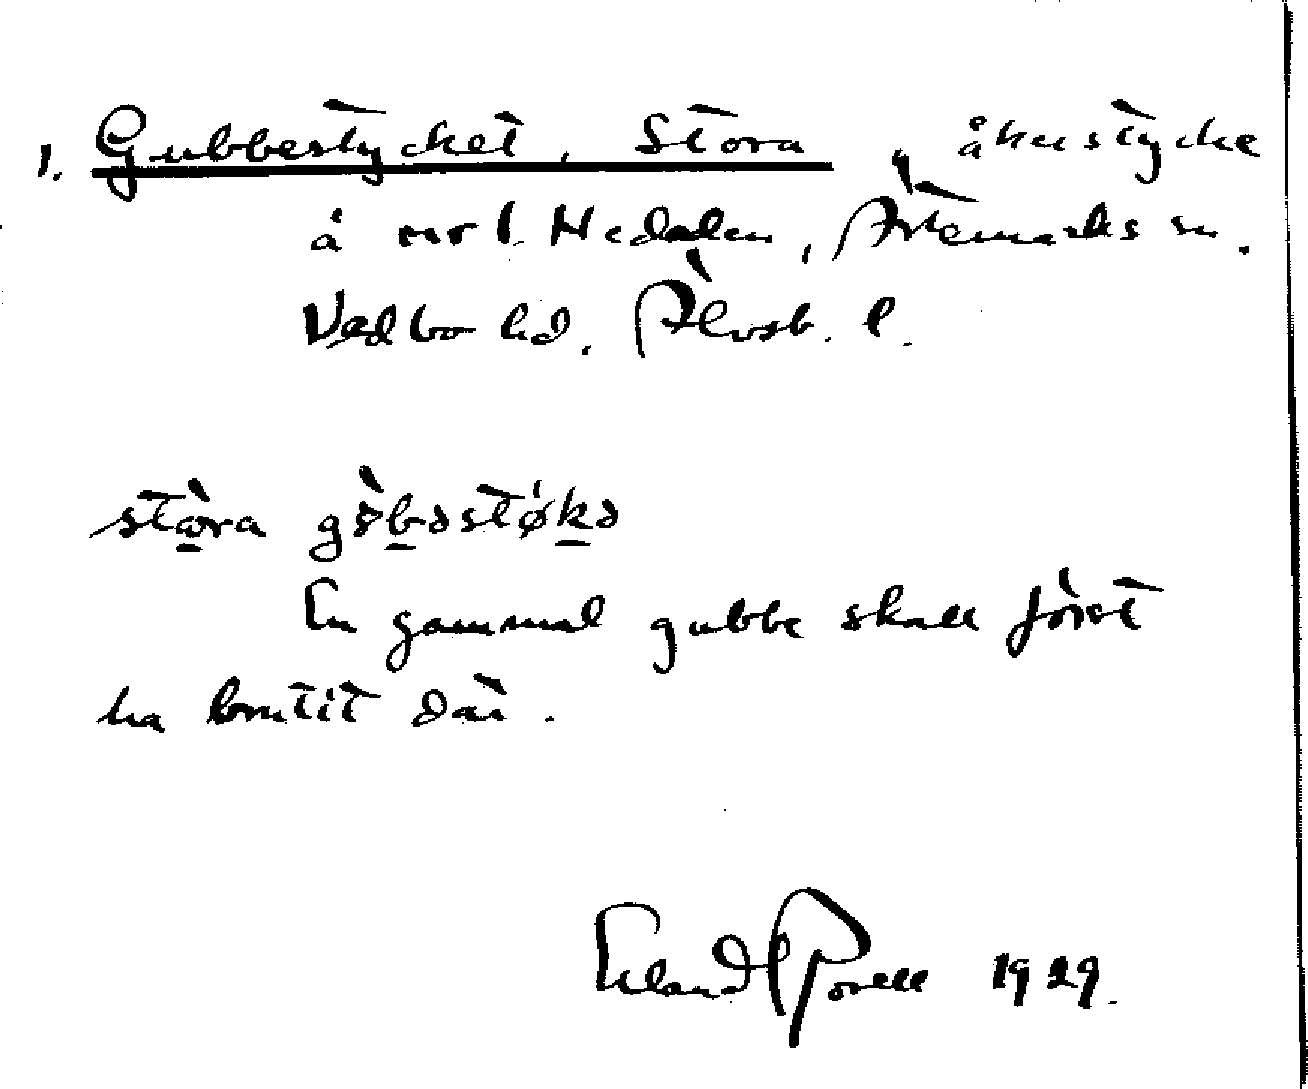 1. Gubbestycket, Stora, åkerstycke
å nr 1. Nedalen, Ärtemarks sn.
Vedbo hd. Älvsb. l.
stɷ̀ra gɵ̀bəstøkə
En gammal gubbe skall först
ha brutit där.
Erland Rosell 1929.